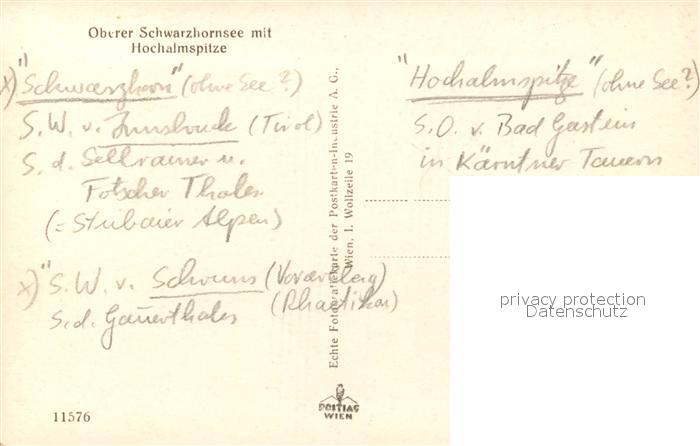 Oberer Schwarzhornsee mit
Hochalmspitze
x) "Schwarzhorn" (ohne See?)
S.W. v. Innsbruck (Tirol)
S. d. Sellrainer u.
Fotscher Thales
(= Stubaier Alpen)
x) " S.W. v. Schruns (Vorarlberg)
(Rhaetikon)
S.d. Gauerthales
11576
Echte Fotografiekarte der Postkarten-Industrie A. G.,
Wien, I. Wollzeile 19
POSTIAG
WIEN
"Hochalmspitze" (ohne See?)
S.O. v. Bad Gastein
in Kärntner Tauern
privacy protection
Datenschutz